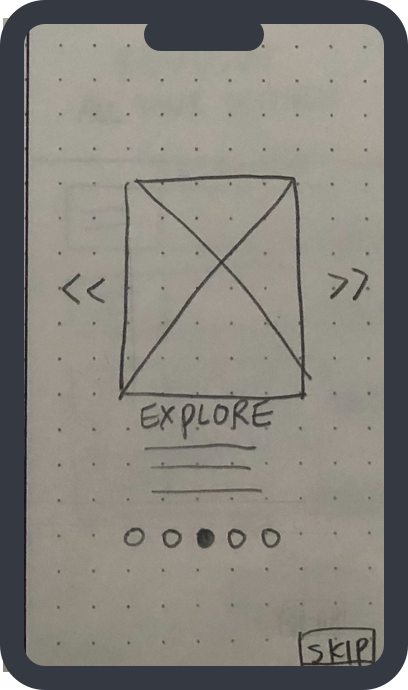 << >>
EXPLORE
SKIP